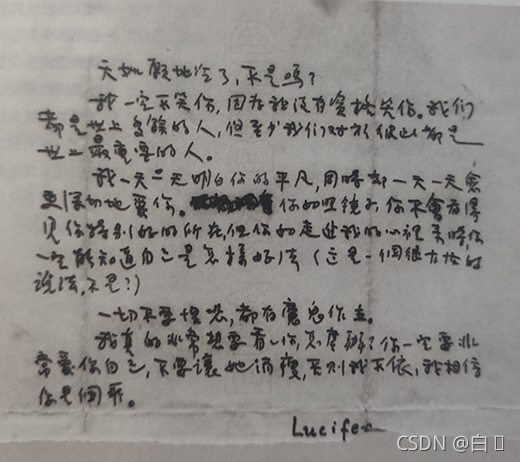 天如願地冷了,不是嗎?
我一定不笑你,因为我没有資格笑你。我们
都是世上多餘的人,但至少我们对於彼此都是
世上最重要的人。
我一天一天明白你的平凡,同時却一天一天愈
更深切地愛你。你如照镜子,你不會看得
見你特别好的所在,但你如走进我的心裡来時,你
一定能知道自己是怎樣好法(这是一個很古怪的
說法,不是?)
一切不要惶恐,都有魔鬼作主。
我真的非常想要看看你,怎麼辦?你一定要非
常愛你自己,不要讓她消瘦,否则我不依,我相信
你是個乖。
Lucifer
CSDN @白